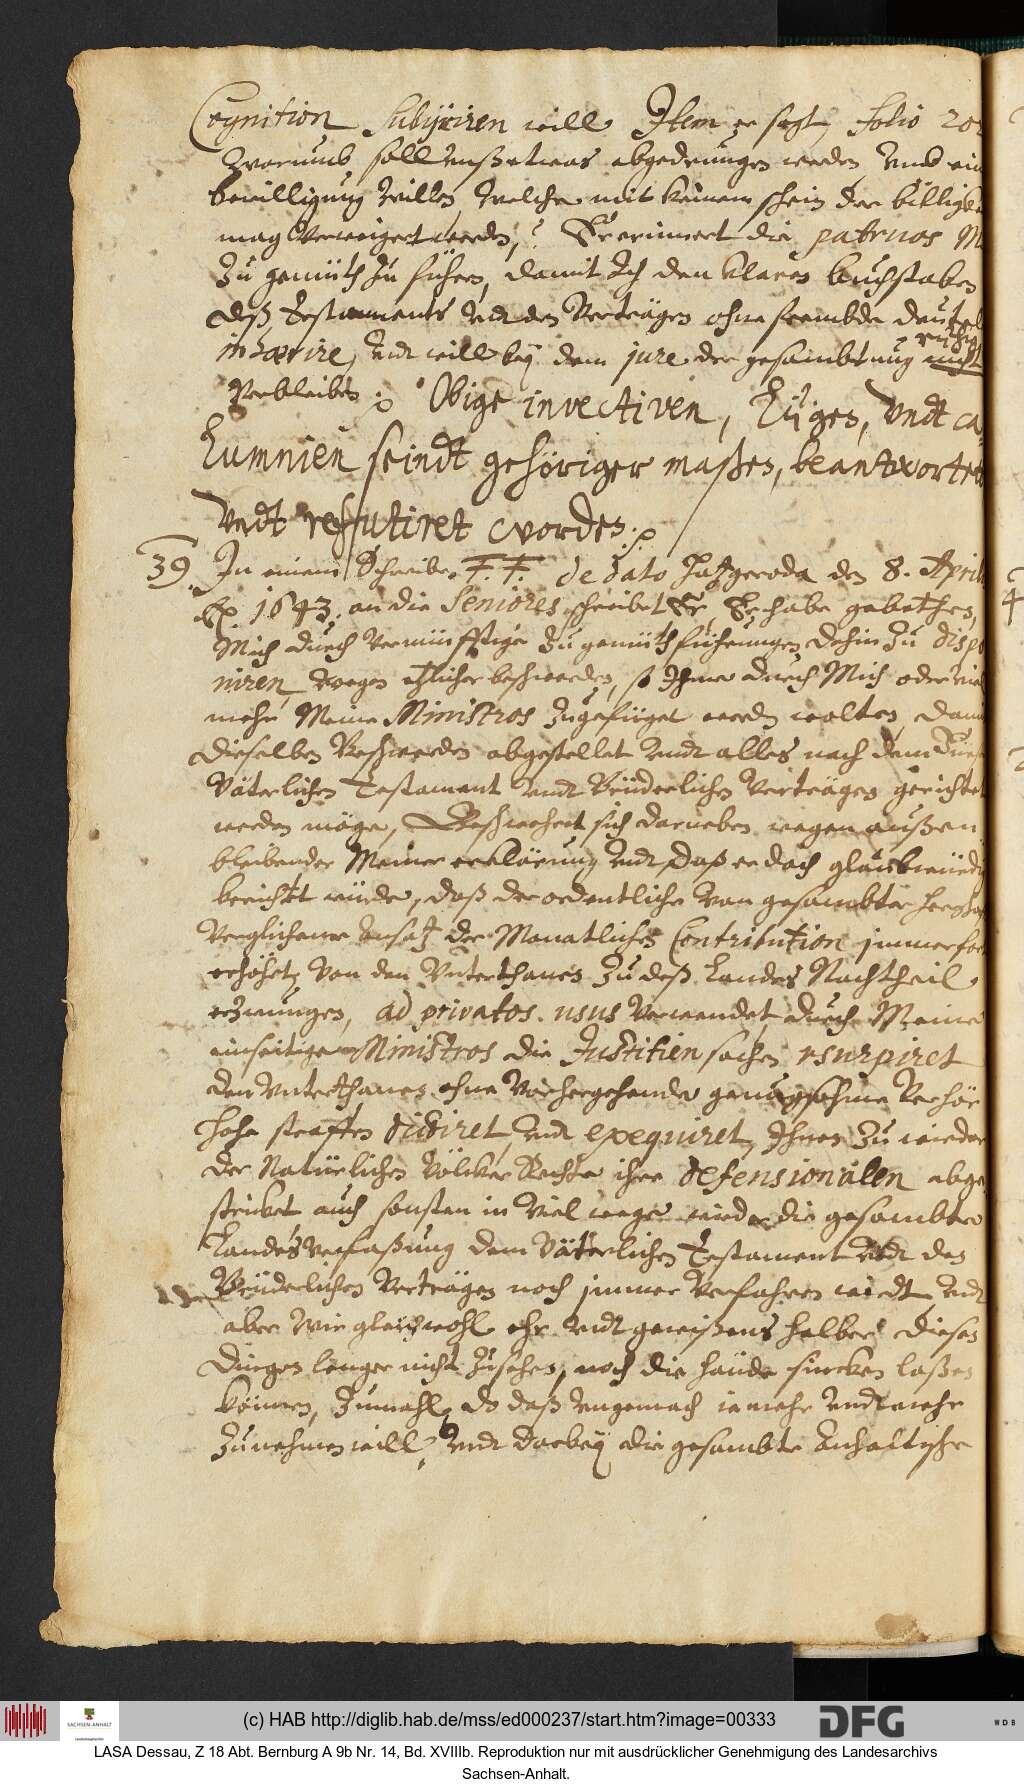 Cognition Subijciren will Item er sagt, folio 202
Warumb soll unß etwas abgedrungen werden, undt ein
bewilligung willen welche mit keinem schein der billigke
mag verweigert werden,? Er erinnert die patruos M
zu gemüth zu führen, damit Ich den klaren buchstaben
deß Testaments undt den Verträgen ohne frembde deutel
inhærire, undt will bey dem jure der gesambtung ruhig
Verbleiben ⁒ Obige invectiven, Lügen, Undt ca-
Lumnien seindt gehöriger maßen, beantwortet
Undt refutiret worden ⁒
39. In einem Schreiben F. F. de dato Hatzgeroda den 8. April
Ao. 1643. an die Seniores schreibet Er, Er habe gebethen,
Mich durch vernünfftige zu gemüthführungen dahin zu dispo
niren, wegen etlicher beschwerden, so Ihme durch Mich oder viel
mehr Meine Ministros zugefüget werden wolten, damit
dieselben Beschwerden abgestellet undt alles nach dem Furst
Väterlichen Testament undt Brüderlichen Verträgen gerichtet
werden möge, Beschwehret sich darneben wegen außen
bleibender Meiner erklärung undt daß er doch glaubwürdig
berichtet würde, daß der ordentliche von gesambter herrschafft
Verglichene ansatz der Monatlichen Contribution jmmerfort
erhöhet, von den Unterthanen zu deß Landes Nachtheil
erzwungen, ad privatos usus verwendet, durch Meine
einseitige Ministros die Justitien sachen usurpiret
den Unterthanen ohne Vorhergehende genugsahme Verhör
hohe straffen dictiret, undt exequiret, Ihnen zu wieder
der Natürlichen Völcker Rechte ihre defensionalen abge
stricket auch sonsten in viel wege wieder die gesambte
Landes verfaßung dem Väterlichen Testament undt den
Brüderlichen Verträgen noch jmmer verfahren wirdt, undt
aber Wir gleichwohl ehr undt gewißens halber diesen
Dingen lenger nicht zusehen, noch die hände sincken laßen
können, Zumahl, do daß ungemach ie mehr undt mehr
zunehmen will, undt darbey die gesambte Anhaltische
(c) HAB http://diglib.hab.de/mss/ed000237/start.htm?image=00333
SACHSEN-ANHALT
DFG
WDB
LASA Dessau, Z 18 Abt. Bernburg A 9b Nr. 14, Bd. XVIIIb. Reproduktion nur mit ausdrücklicher Genehmigung des Landesarchivs
Sachsen-Anhalt.